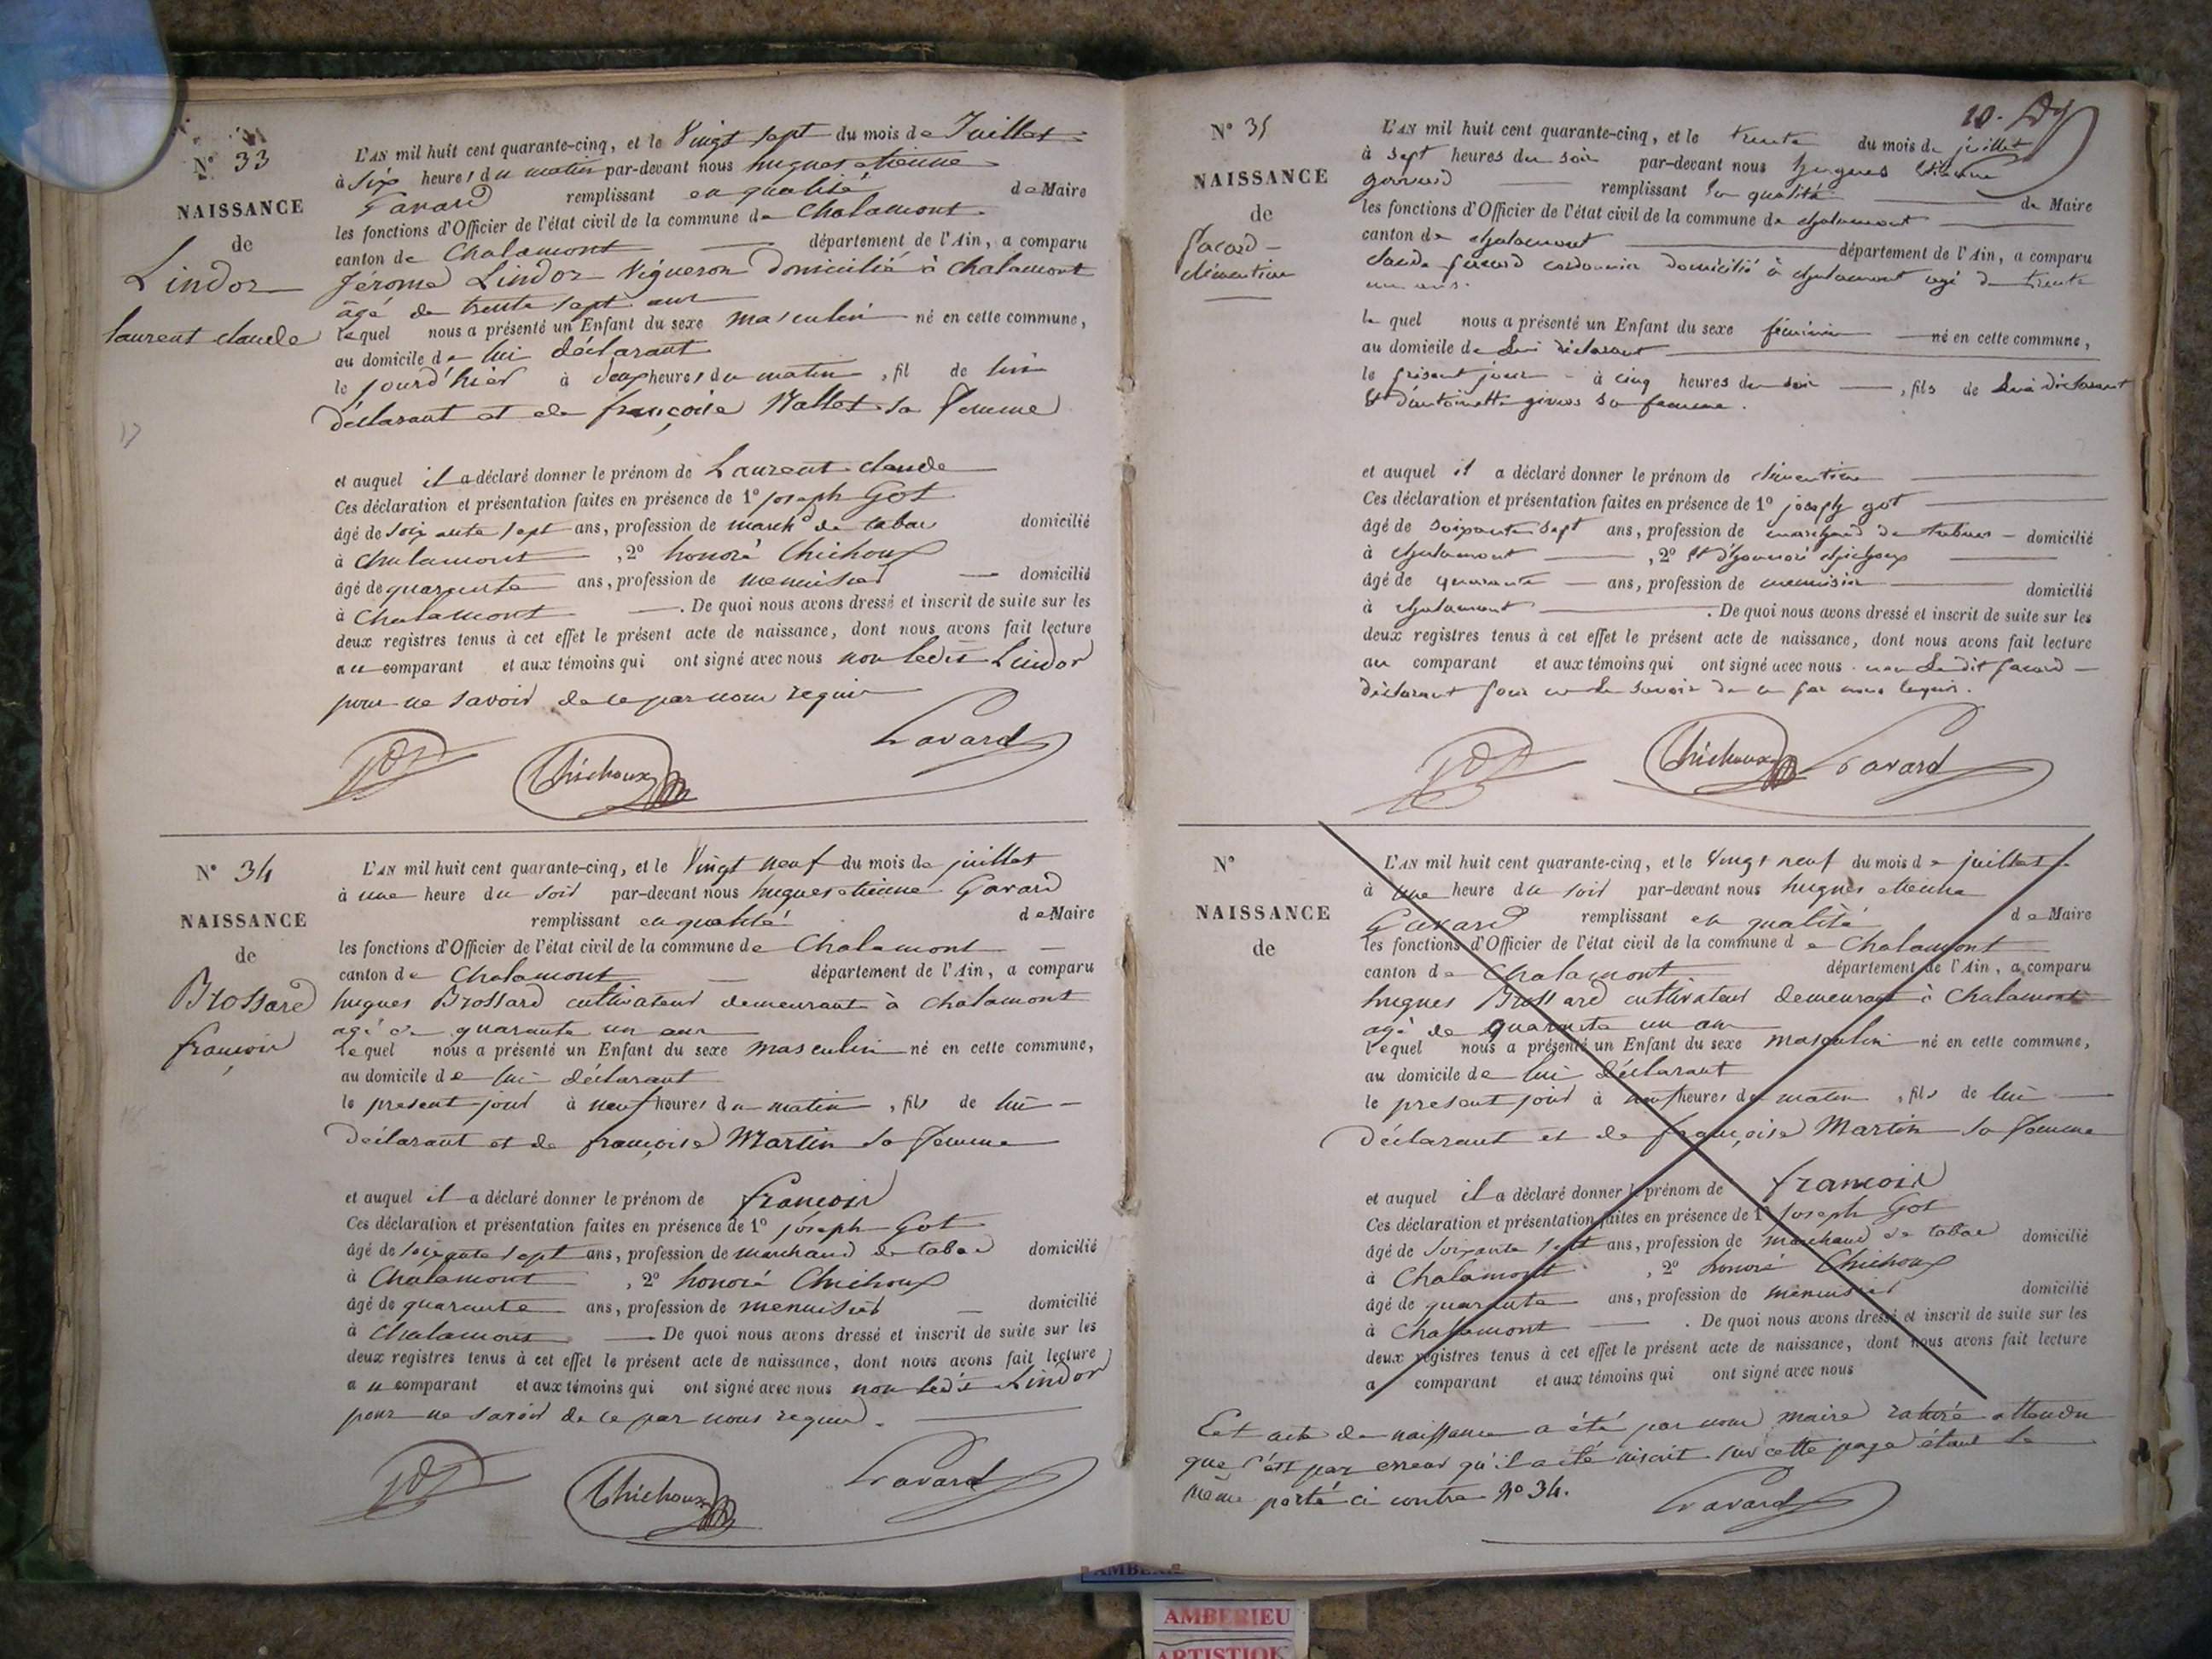 N° 33
NAISSANCE
de
Lindor
laurent claude
L'AN mil huit cent quarante-cinq, et le Vingt sept du mois de Juillet
à six heures du matin par-devant nous hugues etienne
Gavard remplissant en qualité de Maire
les fonctions d'Officier de l'état civil de la commune de Chalamont
canton de Chalamont département de l'Ain, a comparu
Jérome Lindor Vigneron domicilié à Chalamont
âgé de trente sept ans
lequel nous a présenté un Enfant du sexe masculin né en cette commune,
au domicile de lui déclarant
le jourd'hier à deux heures du matin, fil de lui
déclarant et de françoise Mallet sa femme
et auquel il a déclaré donner le prénom de Laurent claude
Ces déclaration et présentation faites en présence de 1° joseph Got
âgé de soixante sept ans, profession de march^d de tabac domicilié
à Chalamont, 2° honoré Chichoux
âgé de quarante ans, profession de menuisier domicilié
à Chalamont. De quoi nous avons dressé et inscrit de suite sur les
deux registres tenus à cet effet le présent acte de naissance, dont nous avons fait lecture
au comparant et aux témoins qui ont signé avec nous non ledit Lindor
pour ne savoir de ce par nous requis
Got Chichoux Gavard
N° 34
NAISSANCE
de
Brossard
françois
L'AN mil huit cent quarante-cinq, et le Vingt neuf du mois de juillet
à une heure du soir par-devant nous hugues etienne Gavard
remplissant en qualité de Maire
les fonctions d'Officier de l'état civil de la commune de Chalamont
canton de Chalamont département de l'Ain, a comparu
hugues Brossard cultivateur demeurant à Chalamont
agé de quarante un ans
lequel nous a présenté un Enfant du sexe masculin né en cette commune,
au domicile de lui déclarant
le present jour à neuf heures du matin, fils de lui
déclarant et de françoise Martin sa femme
et auquel il a déclaré donner le prénom de françois
Ces déclaration et présentation faites en présence de 1° joseph Got
âgé de soixante sept ans, profession de marchand de tabac domicilié
à Chalamont, 2° honoré Chichoux
âgé de quarante ans, profession de menuisier domicilié
à Chalamont De quoi nous avons dressé et inscrit de suite sur les
deux registres tenus à cet effet le présent acte de naissance, dont nous avons fait lecture
au comparant et aux témoins qui ont signé avec nous non ledit Lindor
pour ne savoir de ce par nous requis.
Got Chichoux Gavard
10.
N° 35
NAISSANCE
de
facard
clémentine
L'AN mil huit cent quarante-cinq, et le trente du mois de juillet
à sept heures du soir par-devant nous hugues Etienne
gavard remplissant en qualité de Maire
les fonctions d'Officier de l'état civil de la commune de chalamont
canton de chalamont département de l'Ain, a comparu
claude facard cordonnier domicilié à chalamont agé de trente
un ans.
le quel nous a présenté un Enfant du sexe féminin né en cette commune,
au domicile de lui déclarant
le présent jour à cinq heures du soir, fils de lui déclarant
Et d'antoinette sa femme.
et auquel il a déclaré donner le prénom de clémentine
Ces déclaration et présentation faites en présence de 1° joseph got
âgé de soixante sept ans, profession de marchand de tabac domicilié
à chalamont, 2° Et d'honoré chichoux
âgé de quarante ans, profession de menuisier domicilié
à chalamont. De quoi nous avons dressé et inscrit de suite sur les
deux registres tenus à cet effet le présent acte de naissance, dont nous avons fait lecture
au comparant et aux témoins qui ont signé avec nous non le dit facard
déclarant pour ne le savoir de ce par nous requis.
Got Chichoux Gavard
N°
NAISSANCE
de
L'AN mil huit cent quarante-cinq, et le Vingt neuf du mois de juillet
à une heure du soir par-devant nous hugues etienne
Gavard remplissant en qualité de Maire
les fonctions d'Officier de l'état civil de la commune de Chalamont
canton de Chalamont département de l'Ain, a comparu
hugues Brossard cultivateur demeurant à Chalamont
agé de quarante un an
lequel nous a présenté un Enfant du sexe masculin né en cette commune,
au domicile de lui déclarant
le present jour à neuf heures du matin, fils de lui
déclarant et de françoise Martin sa femme
et auquel il a déclaré donner le prénom de françois
Ces déclaration et présentation faites en présence de 1° Joseph Got
âgé de soixante sept ans, profession de marchand de tabac domicilié
à Chalamont, 2° honoré Chichoux
âgé de quarante ans, profession de menuisier domicilié
à Chalamont. De quoi nous avons dressé et inscrit de suite sur les
deux registres tenus à cet effet le présent acte de naissance, dont nous avons fait lecture
a comparant et aux témoins qui ont signé avec nous
Cet acte de naissance a été par nous maire raturé attendu
que c'est par erreur qu'il a été inscrit sur cette page étant le
même porté ci contre N° 34.
Gavard
AMBERIEU
ARTISTIQ